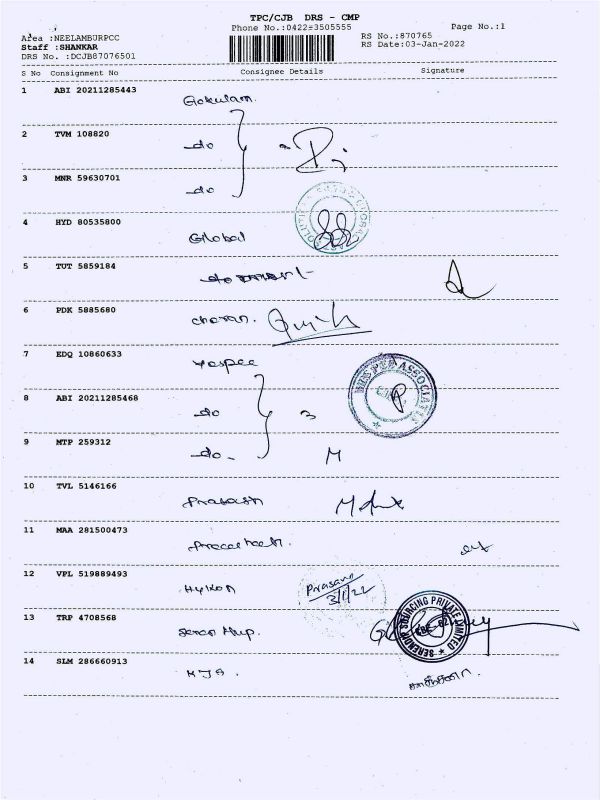 TPC/CJB DRS - CMP
Phone No.:0422-3505555 Page No.:1
Area :NEELAMBURPCC RS No.:870765
Staff :SHANKAR RS Date:03-Jan-2022
DRS No. :DCJB87076501
S No Consignment No Consignee Details Signature
1 ABI 20211285443
Gokulam.
2 TVM 108820
do
3 MNR 59630701
do
4 HYD 80535800
Global
5 TUT 5859184
do
6 PDK 5885680
charan.
7 EDQ 10860633
8 ABI 20211285468
do 3
9 MTP 259312
do. M
10 TVL 5146166
Prakash
11 MAA 281500473
12 VPL 519889493
Hylkon Prasanr
3/1/22
13 TRP 4708568
SOURCING PRIVATE LIMITED
14 SLM 286660913
MJS.